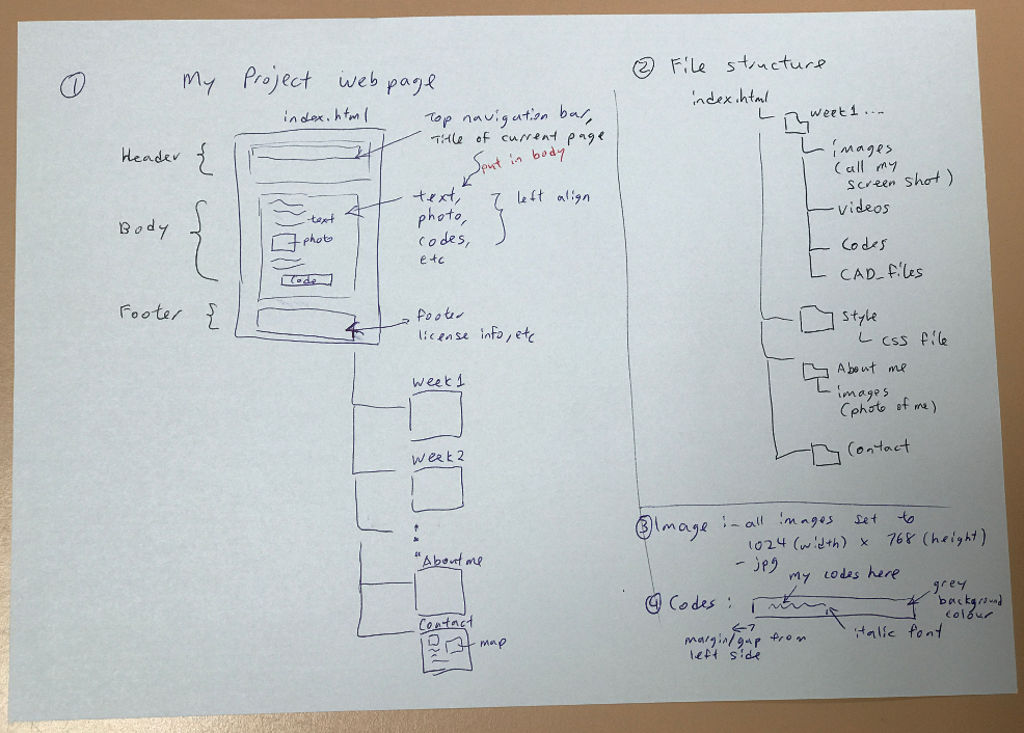 ①
My Project webpage
index.html
Header
Top navigation bar,
Title of current page
put in body
Body
text
photo
Code
text,
photo,
codes,
etc
left align
Footer
footer
license info, etc
Week 1
Week 2
About me
Contact
map
② File structure
index.html
week1 ....
images
(all my
screen shot)
videos
Codes
CAD_files
Style
css file
About me
images
(photo of me)
Contact
③ Image :- all images set to
1024 (width) x 768 (height)
- jpg
④ Codes :
my codes here
grey
background
colour
italic font
margin/gap from
left side